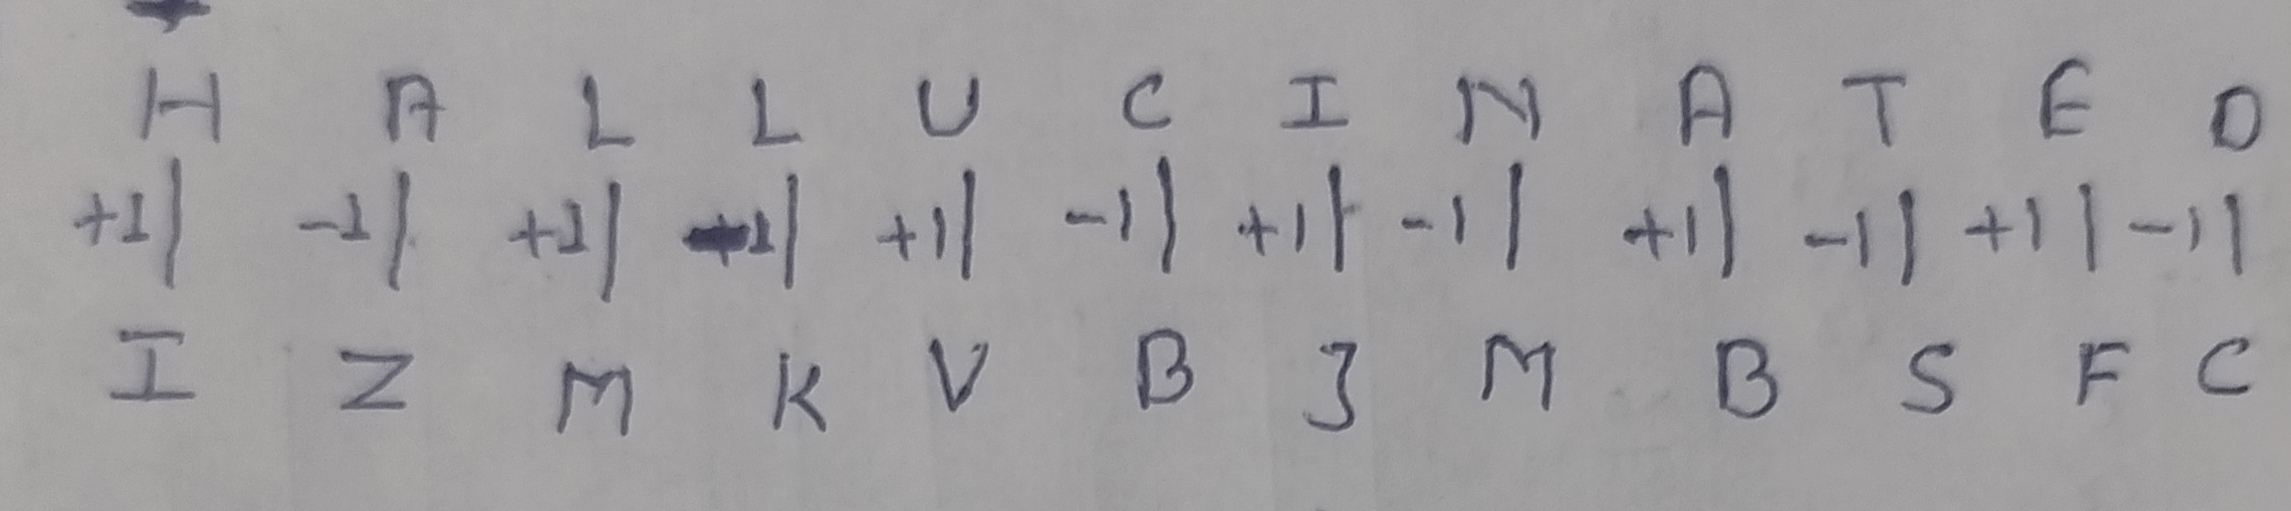 H A L L U C I N A T E D
+1| -1| +1| -1| +1| -1| +1| -1| +1| -1| +1| -1|
I Z M K V B J M B S F C